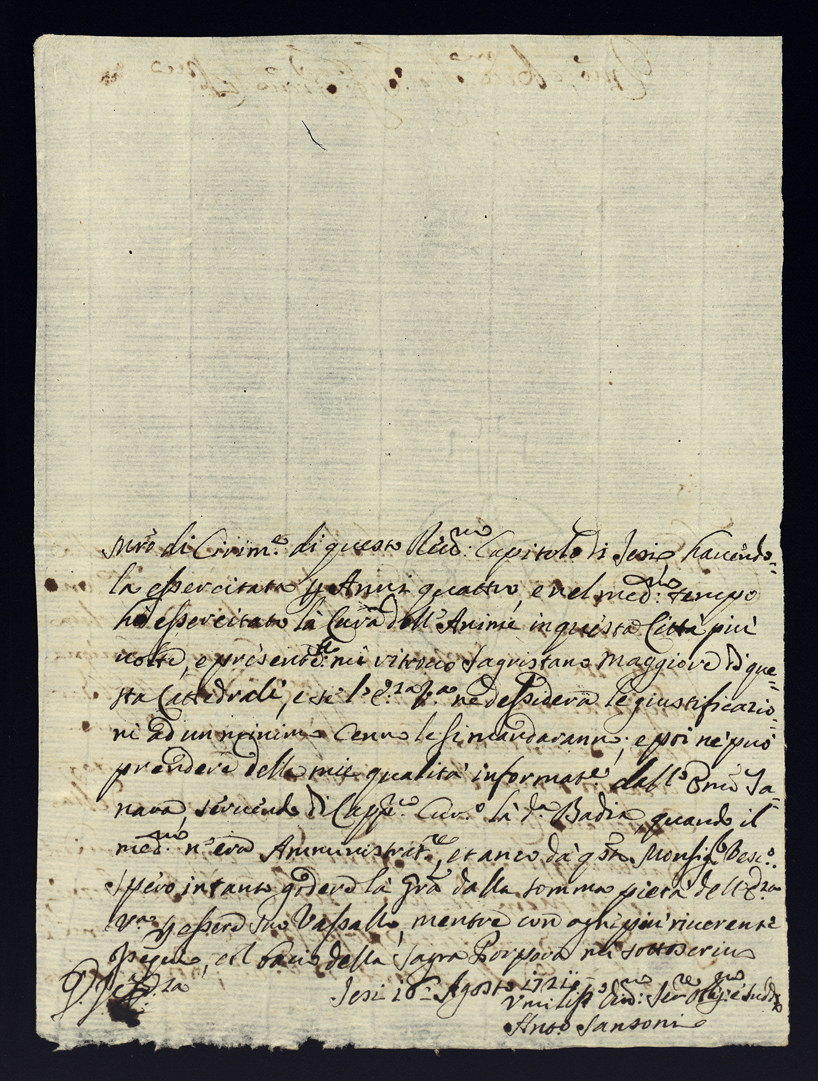 Mro di Cirim.e di questo Reud:mo Capitolo di Jesi, havendo=
la essercitata p Anni quattro, e nel med:mo tempo
hò essercitato la Cura dell'Anime in questa Città più
volte, e presente:te mi ritrovo Sagristano Maggiore di que=
sta Cattedrale, e se l'E.za V.a ne desidera le giustificazio=
ni ad un minimo Cenno le si mandaranno; e poi ne può
prendere delle mie qualità informat.e dall'Emo Ta=
nara, servendo di Capp.no Cur.o la d.a Badia quando il
med:mo n'era Amministrat.re, et anco dà q.sto Monsig.r Vesc.o.
Spero intanto godere la Gra dalla somma pietà dell'E.za
V.ra p essere suo Vassallo, mentre con ogni più riverente
ossequio, col bacio della Sagra Porpora mi sottoscrivo
D. V. E.za
Jesi 16 Agosto 1721
Vmiliss:mo Diu:mo Ser.re Oblig:mo e suddto
Anto Sansoni